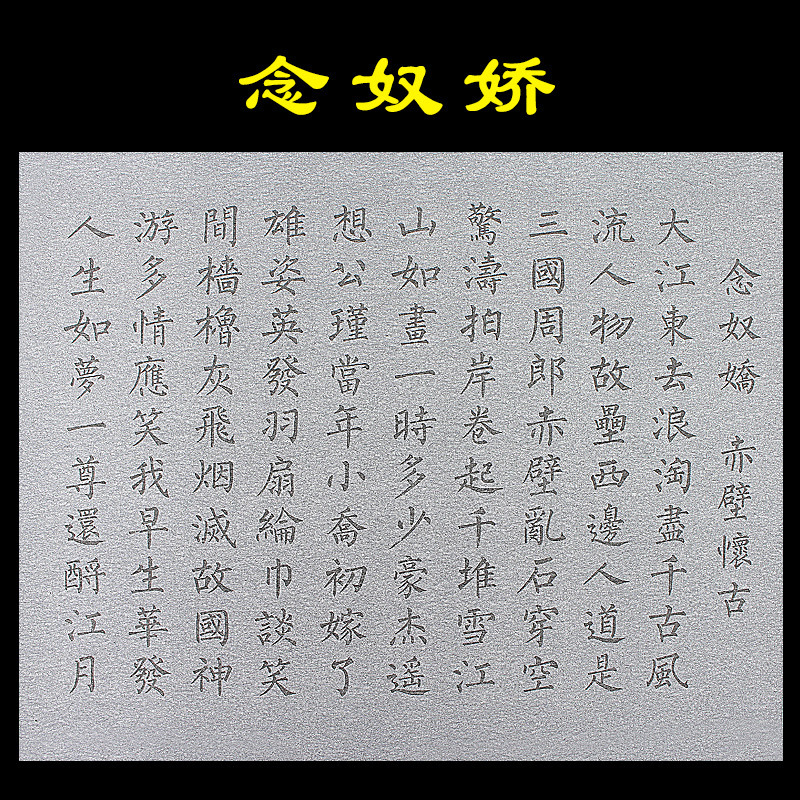 念奴娇
念奴嬌 赤壁懷古
大江東去浪淘盡千古風
流人物故壘西邊人道是
三國周郎赤壁亂石穿空
驚濤拍岸卷起千堆雪江
山如畫一時多少豪杰遥
想公瑾當年小喬初嫁了
雄姿英發羽扇綸巾談笑
間檣櫓灰飛烟滅故國神
游多情應笑我早生華發
人生如夢一尊還酹江月